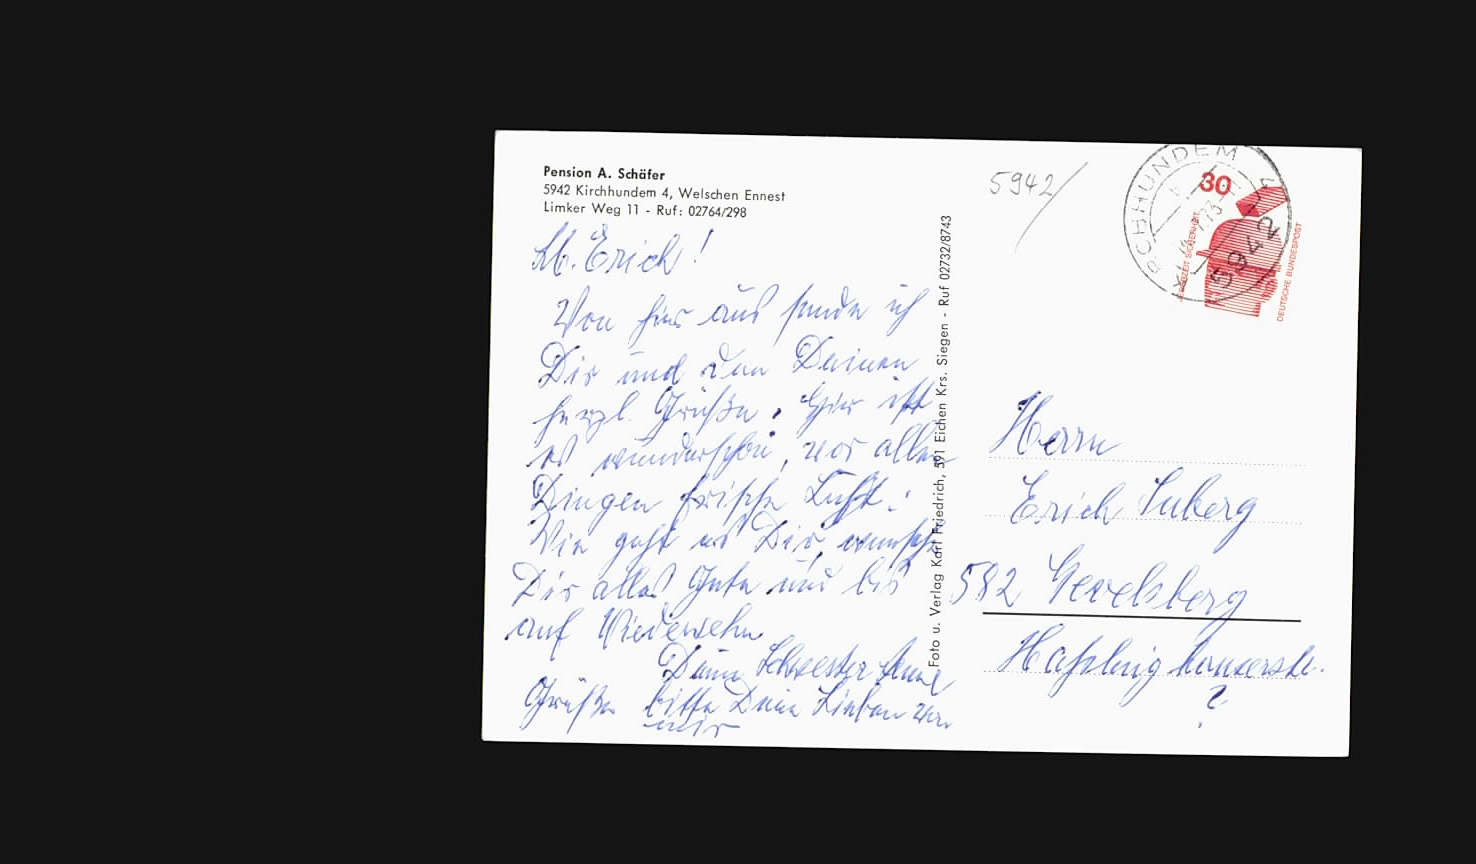 Pension A. Schäfer
5942 Kirchhundem 4, Welschen Ennest
Limker Weg 11 - Ruf: 02764/298
Lb. Erich!
Von hier aus sende ich
Dir und den Deinen
herzl. Grüße. Hier ist
es wunderschön, vor allen
Dingen frische Luft.
Wie geht es Dir, wünsche
Dir alles Gute und bis
auf Wiedersehn
Deine Schwester Anne
Grüße bitte Deine Lieben von
mir
Foto u. Verlag Karl Friedrich, 591 Eichen Krs. Siegen - Ruf 02732/8743
5942
30
DEUTSCHE BUNDESPOST
5942
Herrn
Erich Suberg
582 Gevelsberg
?